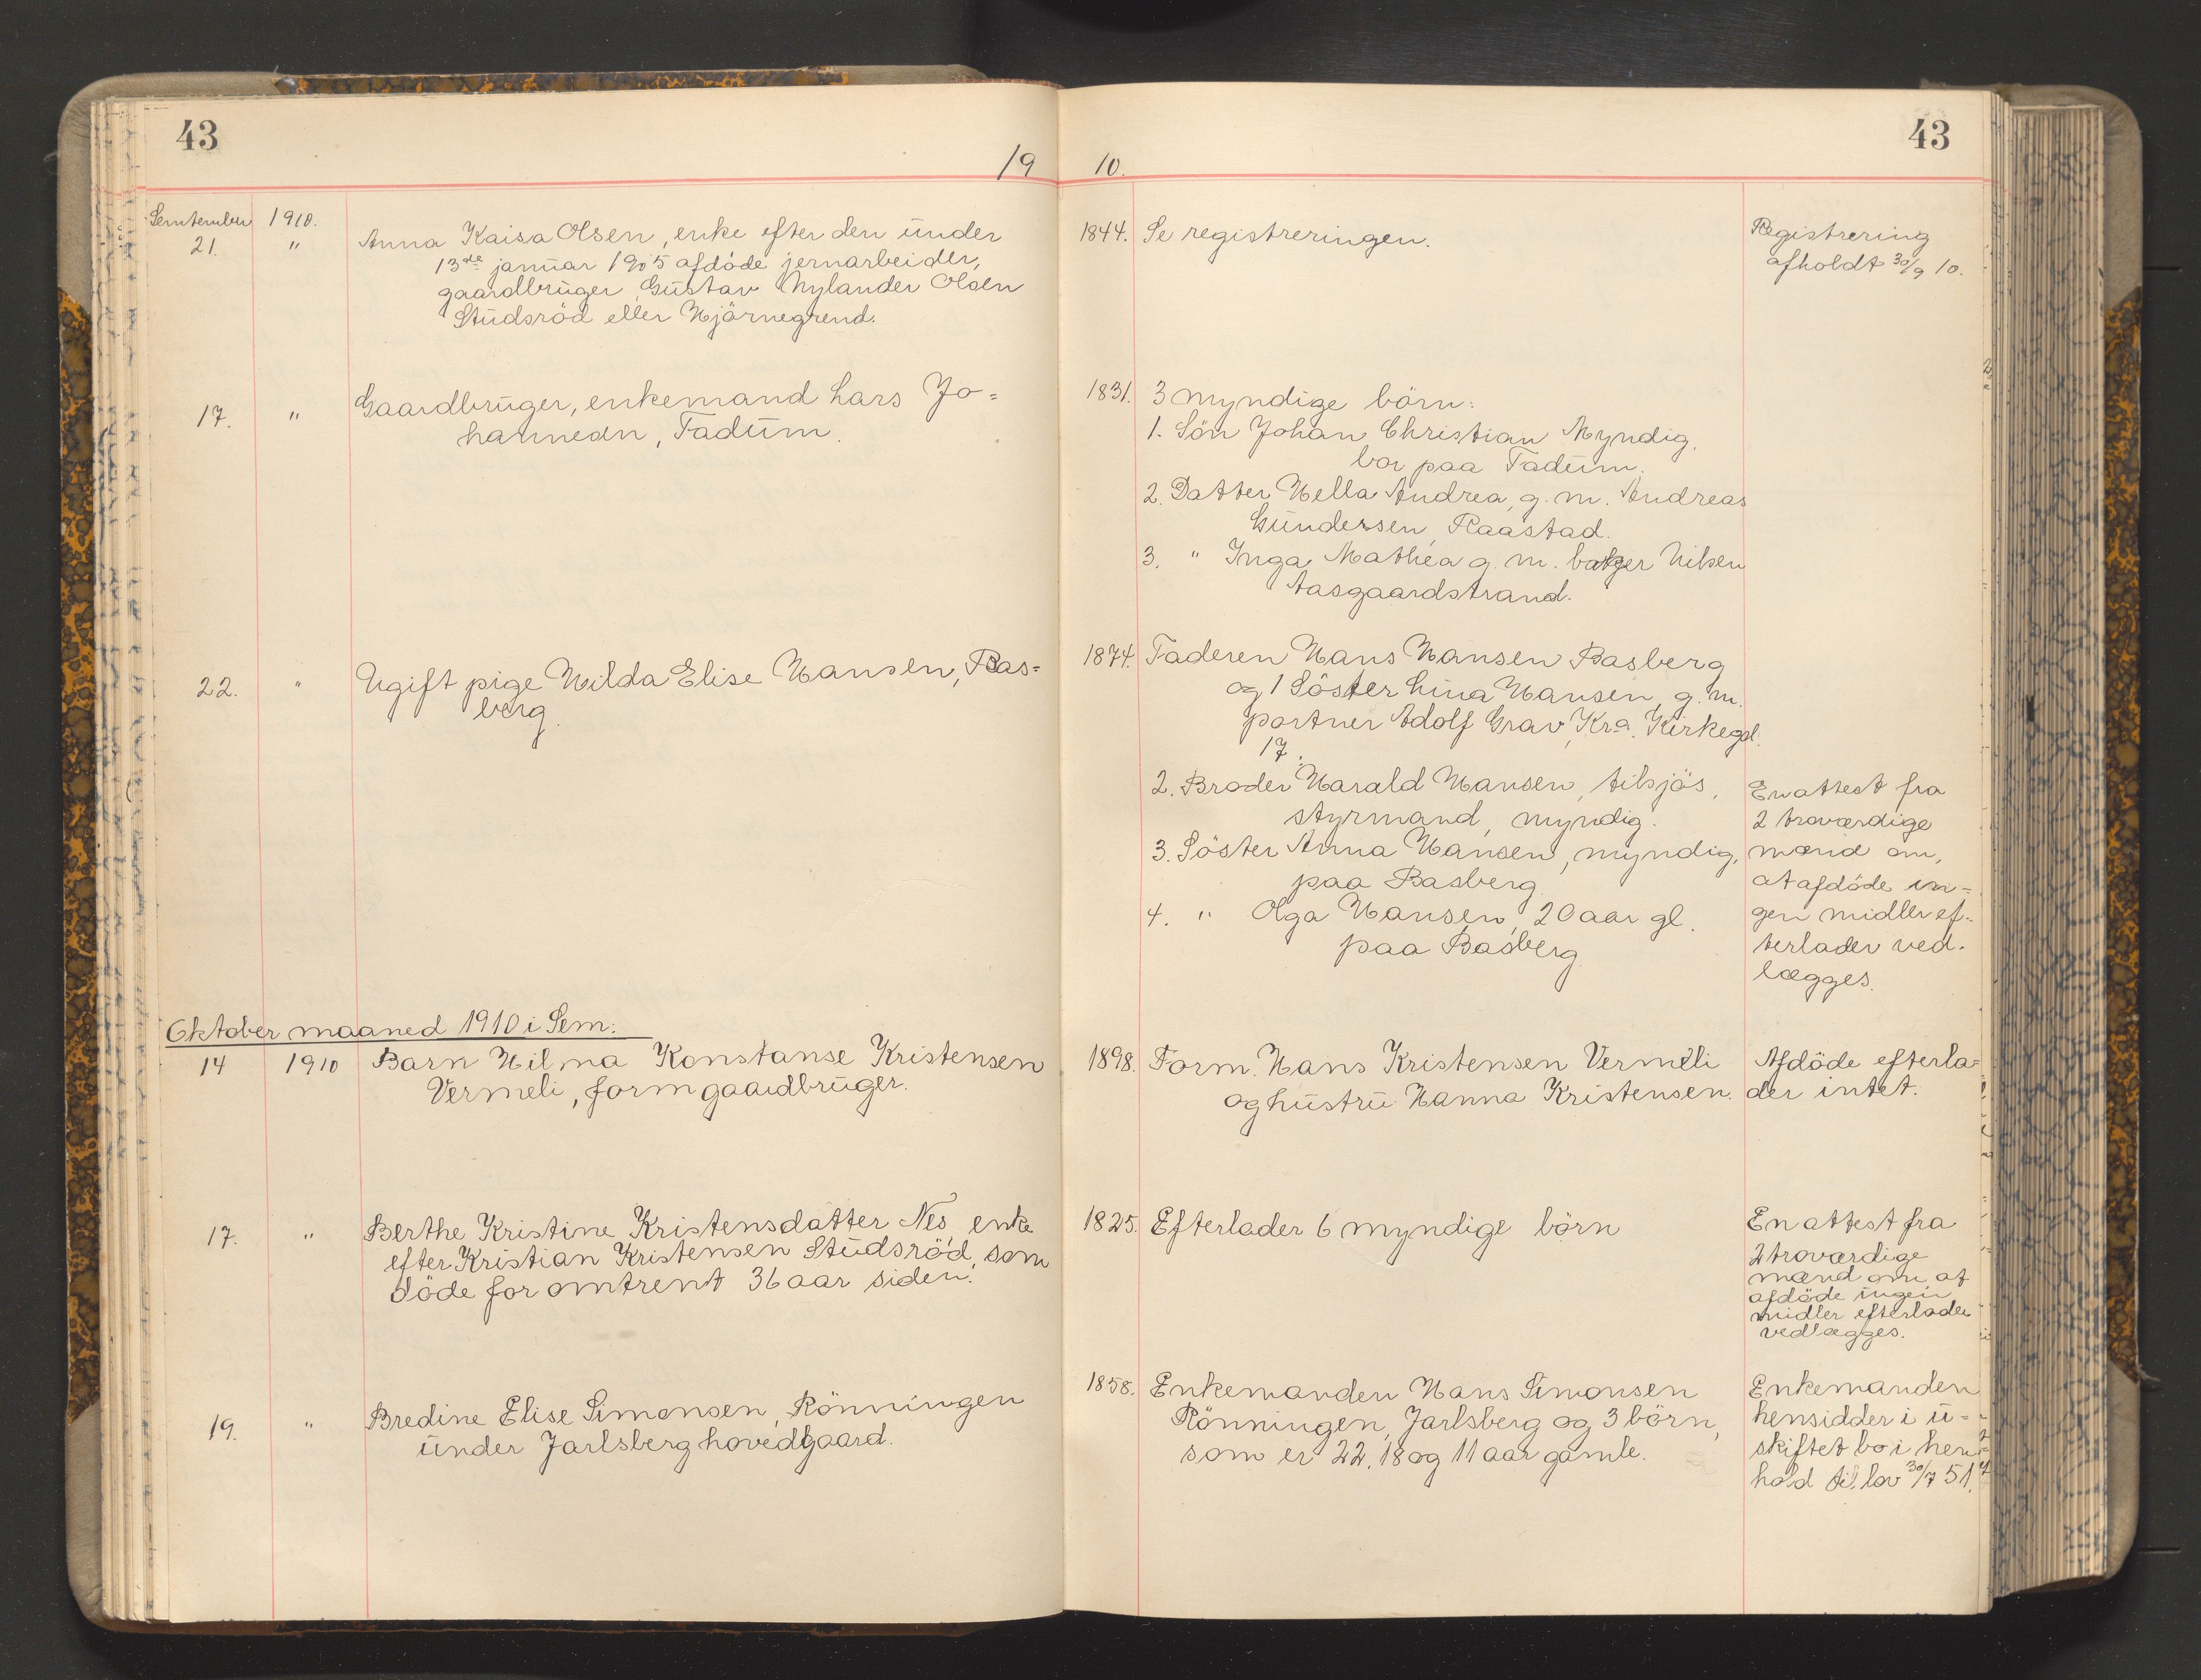 43
19
September 1910.
21. " Anna Kaisa Olsen, enke efter den under
13de januar 1905 afdöde jernarbeider,
gaardbruger Gustav Nylander Olsen
Studsröd eller Hjörnegrend.
17. " Gaardbruger, enkemand Lars Jo=
hannesn, Tadum.
22. " Ugift pige Hilda Elise Hansen, Bas=
berg.
Oktober maaned 1910 i Sem:
14 1910 Barn Hilma Konstanse Kristensen
Vermeli, form gaardbruger.
17. " Berthe Kristine Kristensdatter Nes, enke
efter Kristian Kristensen Studsröd, som
döde for omtrent 36 aar siden.
19. " Bredine Elise Simonsen, Rönningen
under Jarlsberg hovedgaard.
43
10.
1844. Se registreringen.
Registrering
afholdt 30/9 10.
1831. 3 myndige börn:
1. Sön Johan Christian Myndig,
bor paa Tadum.
2. Datter Hella Andrea, g. m. Andreas
Gundersen, Raastad.
3. " Inga Mathea g. m. Nilsen
Aasgaardstrand.
1874. Faderen Hans Hansen Basberg
og 1 Söster Lina Hansen, g. m.
portner Adolf Grav, Kra. Kirkegd.
17.
2. Broder Harald Hansen, tilsjös,
styrmand, myndig.
3. Söster Anna Hansen, myndig,
paa Basberg.
4. " Olga Hansen, 20 aar gl.
paa Basberg
En attest fra
2 troværdige
mænd om,
at afdöde in=
gen midler ef=
terlader ved-
lægges.
1898. Form. Hans Kristensen Vermeli
og hustru Hanna Kristensen.
Afdöde efterla=
der intet.
1825. Efterlader 6 myndige börn
En attest fra
2 troværdige
mænd om, at
afdöde ingen
midler efterlader
vedlægges.
1858. Enkemanden Hans Simonsen
Rönningen, Jarlsberg og 3 börn,
som er 22, 18 og 11 aar gamle.
Enkemanden
hensidder i u=
skiftet bo i hen=
hold til lov 30/7 51.